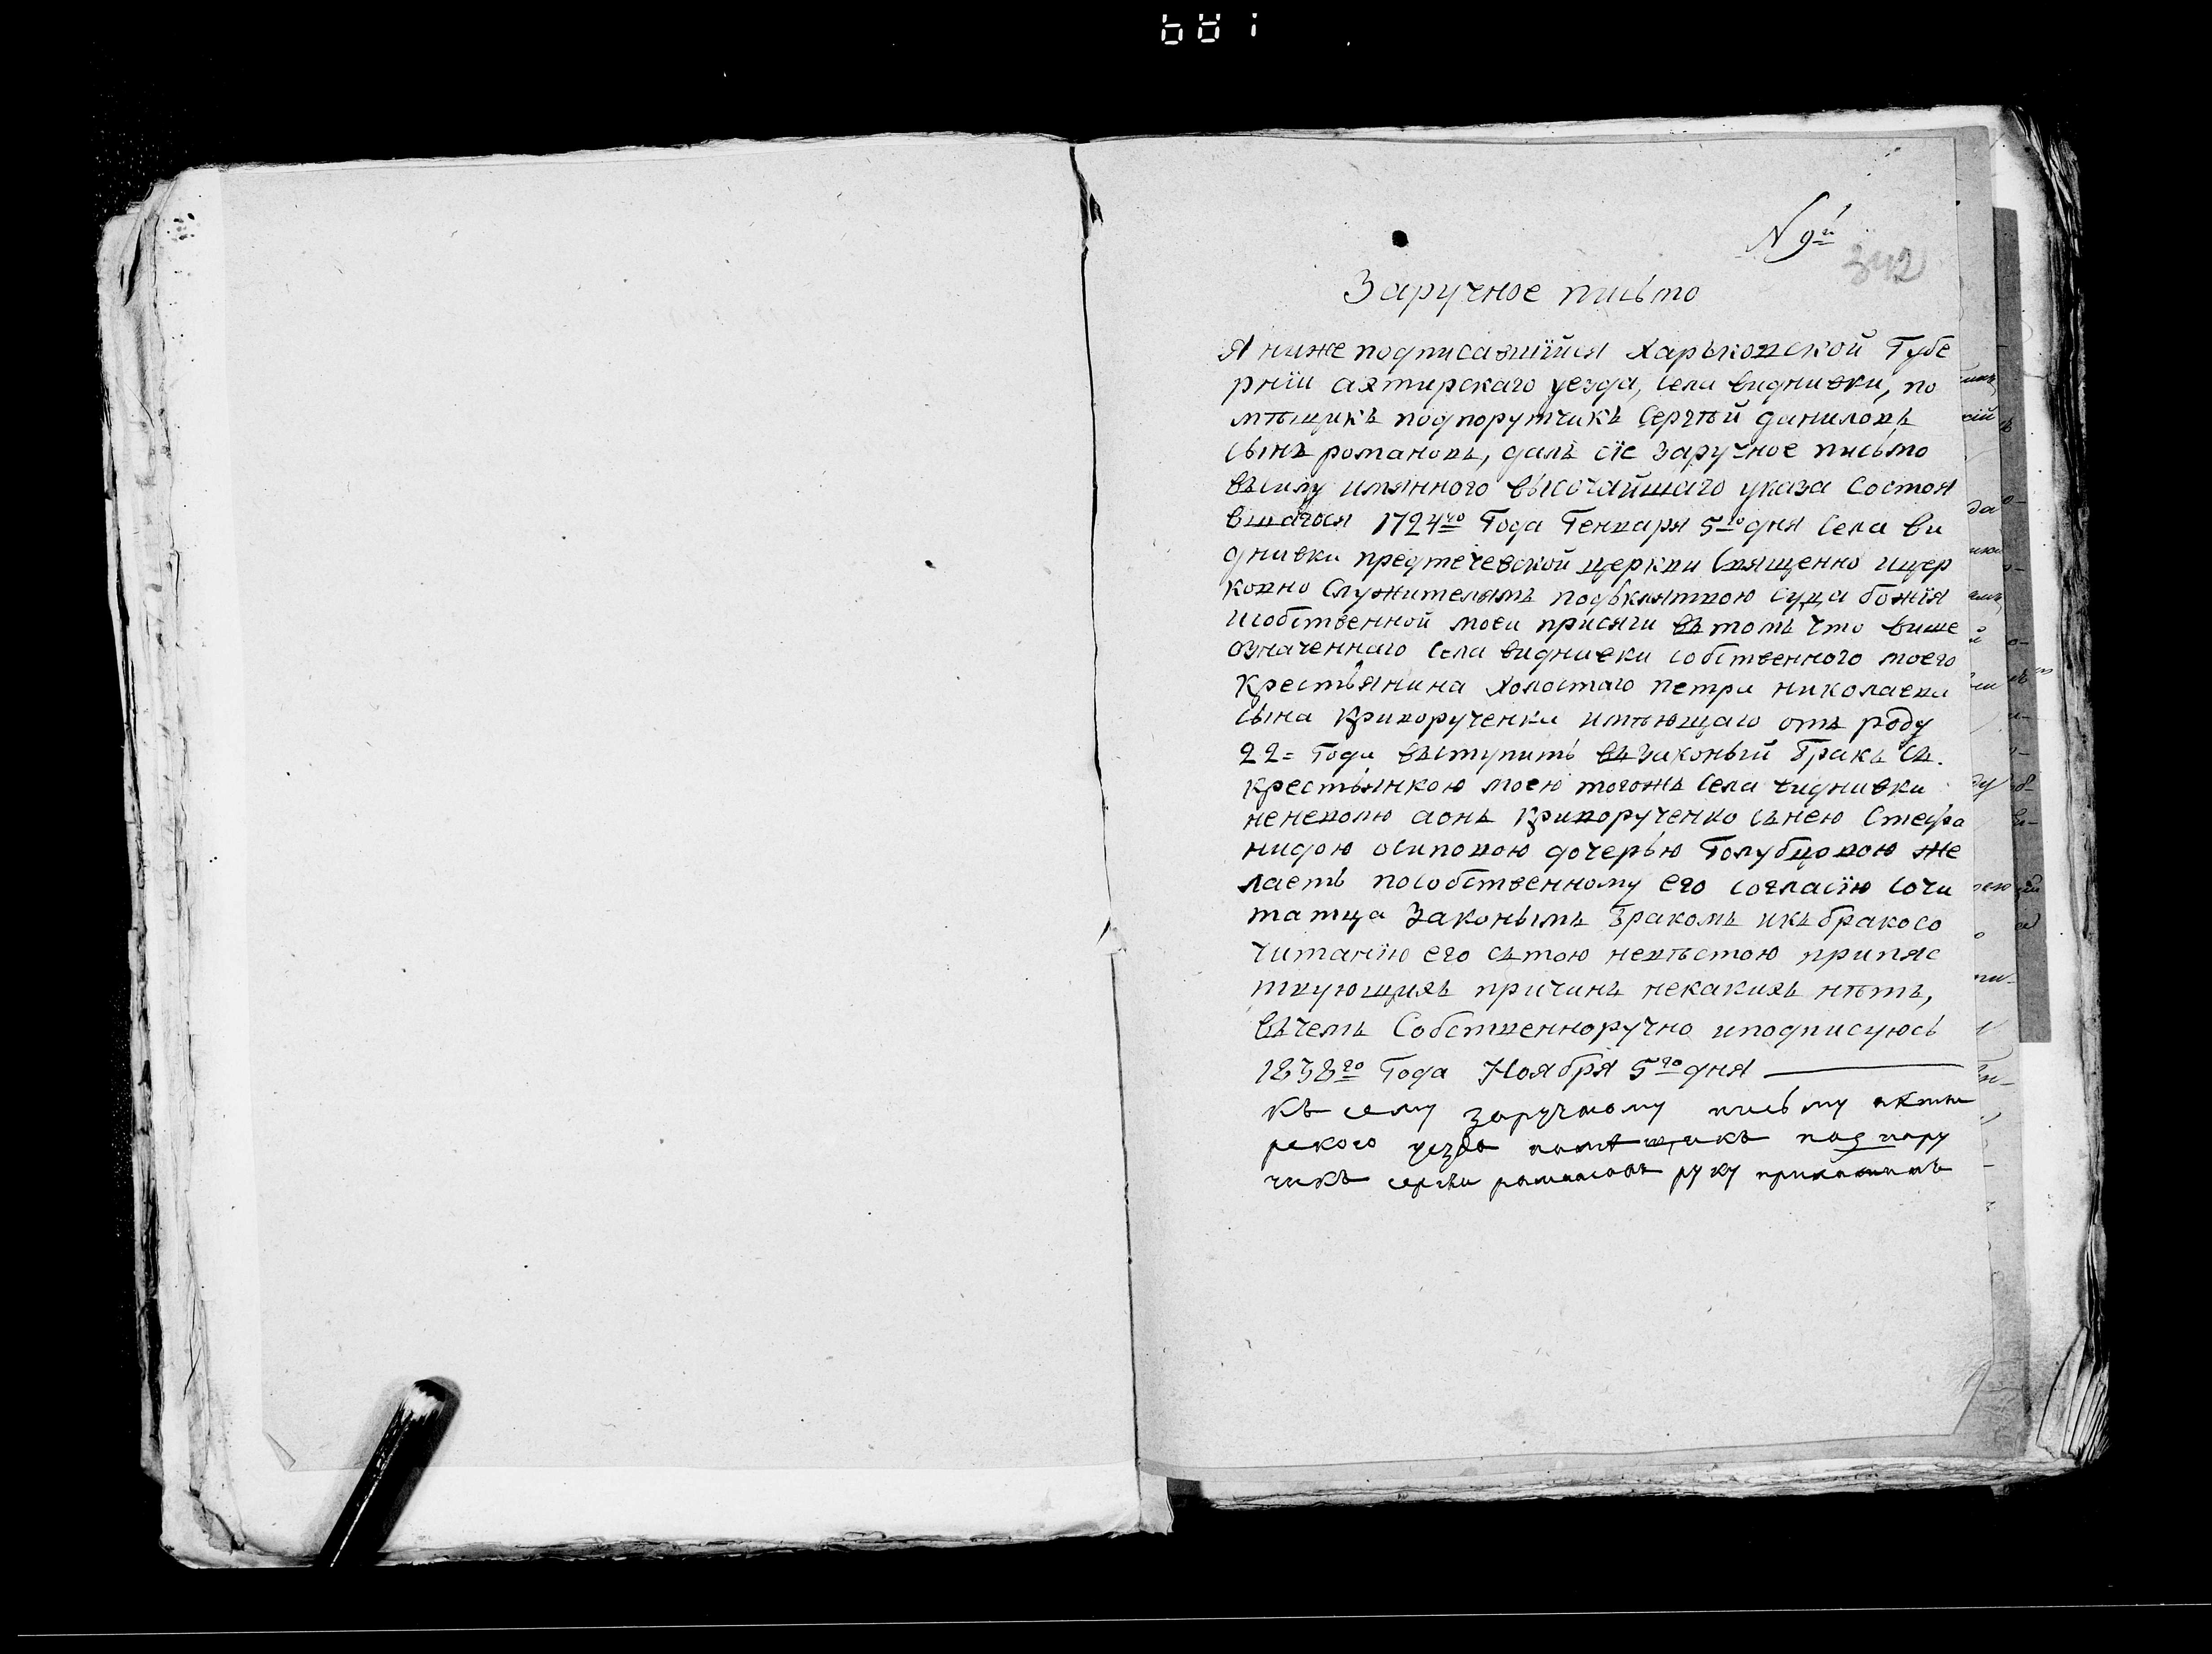 N 9й
342
Заручное письмо
Я ниже подписавшїйся Харьковской Губе
рнїи ахтирскаго уезда, села виднивки, по
мѣщикъ подпорутчикъ Сергѣй даниловъ
сынъ романовъ, далъ сїе заручное письмо
въсилу имянного высочайшаго указа состоя
вшагося 1724го Года Генваря 5го дня села ви
днивки предтечевской церкви Священно ищер
ковно служителямъ подъклятвою суда божїя
исобственной моеи присяги въ томъ что више
означеннаго села виднивки собственного моего
крестьянина холостаго петра николаева
сына криворученка имѣющаго отъ роду
22= года въступить въ законый бракъ съ
крестьянкою моею тогожъ села виднивки
неневолю аонъ криворученко сънею Стефа
нидою осиповою дочерью Голубцовою же
лаетъ пособственному его согласїю сочи
татца законымъ бракомъ икъ бракосо
читанїю его стою невѣстою припяс
твующихъ причинъ некакихъ нѣтъ,
въчемъ Собственноручно иподписуюсь
1838го Года Ноября 5го дня
къ сему заручному письму ахти
рского уезда помѣщикъ подпору
чикъ сергеи романовъ руку приложилъ